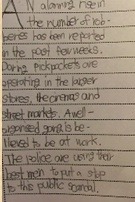 AN alarming rise in
the number of rob-
beries has been reported
in the past few weeks.
Daring pickpockets are
operating in the larger
stores, the cinemas and
street markets. A well-
organized gang is be-
lieved to be at work.
The police are using their
best men to put a stop
to this public scandal.